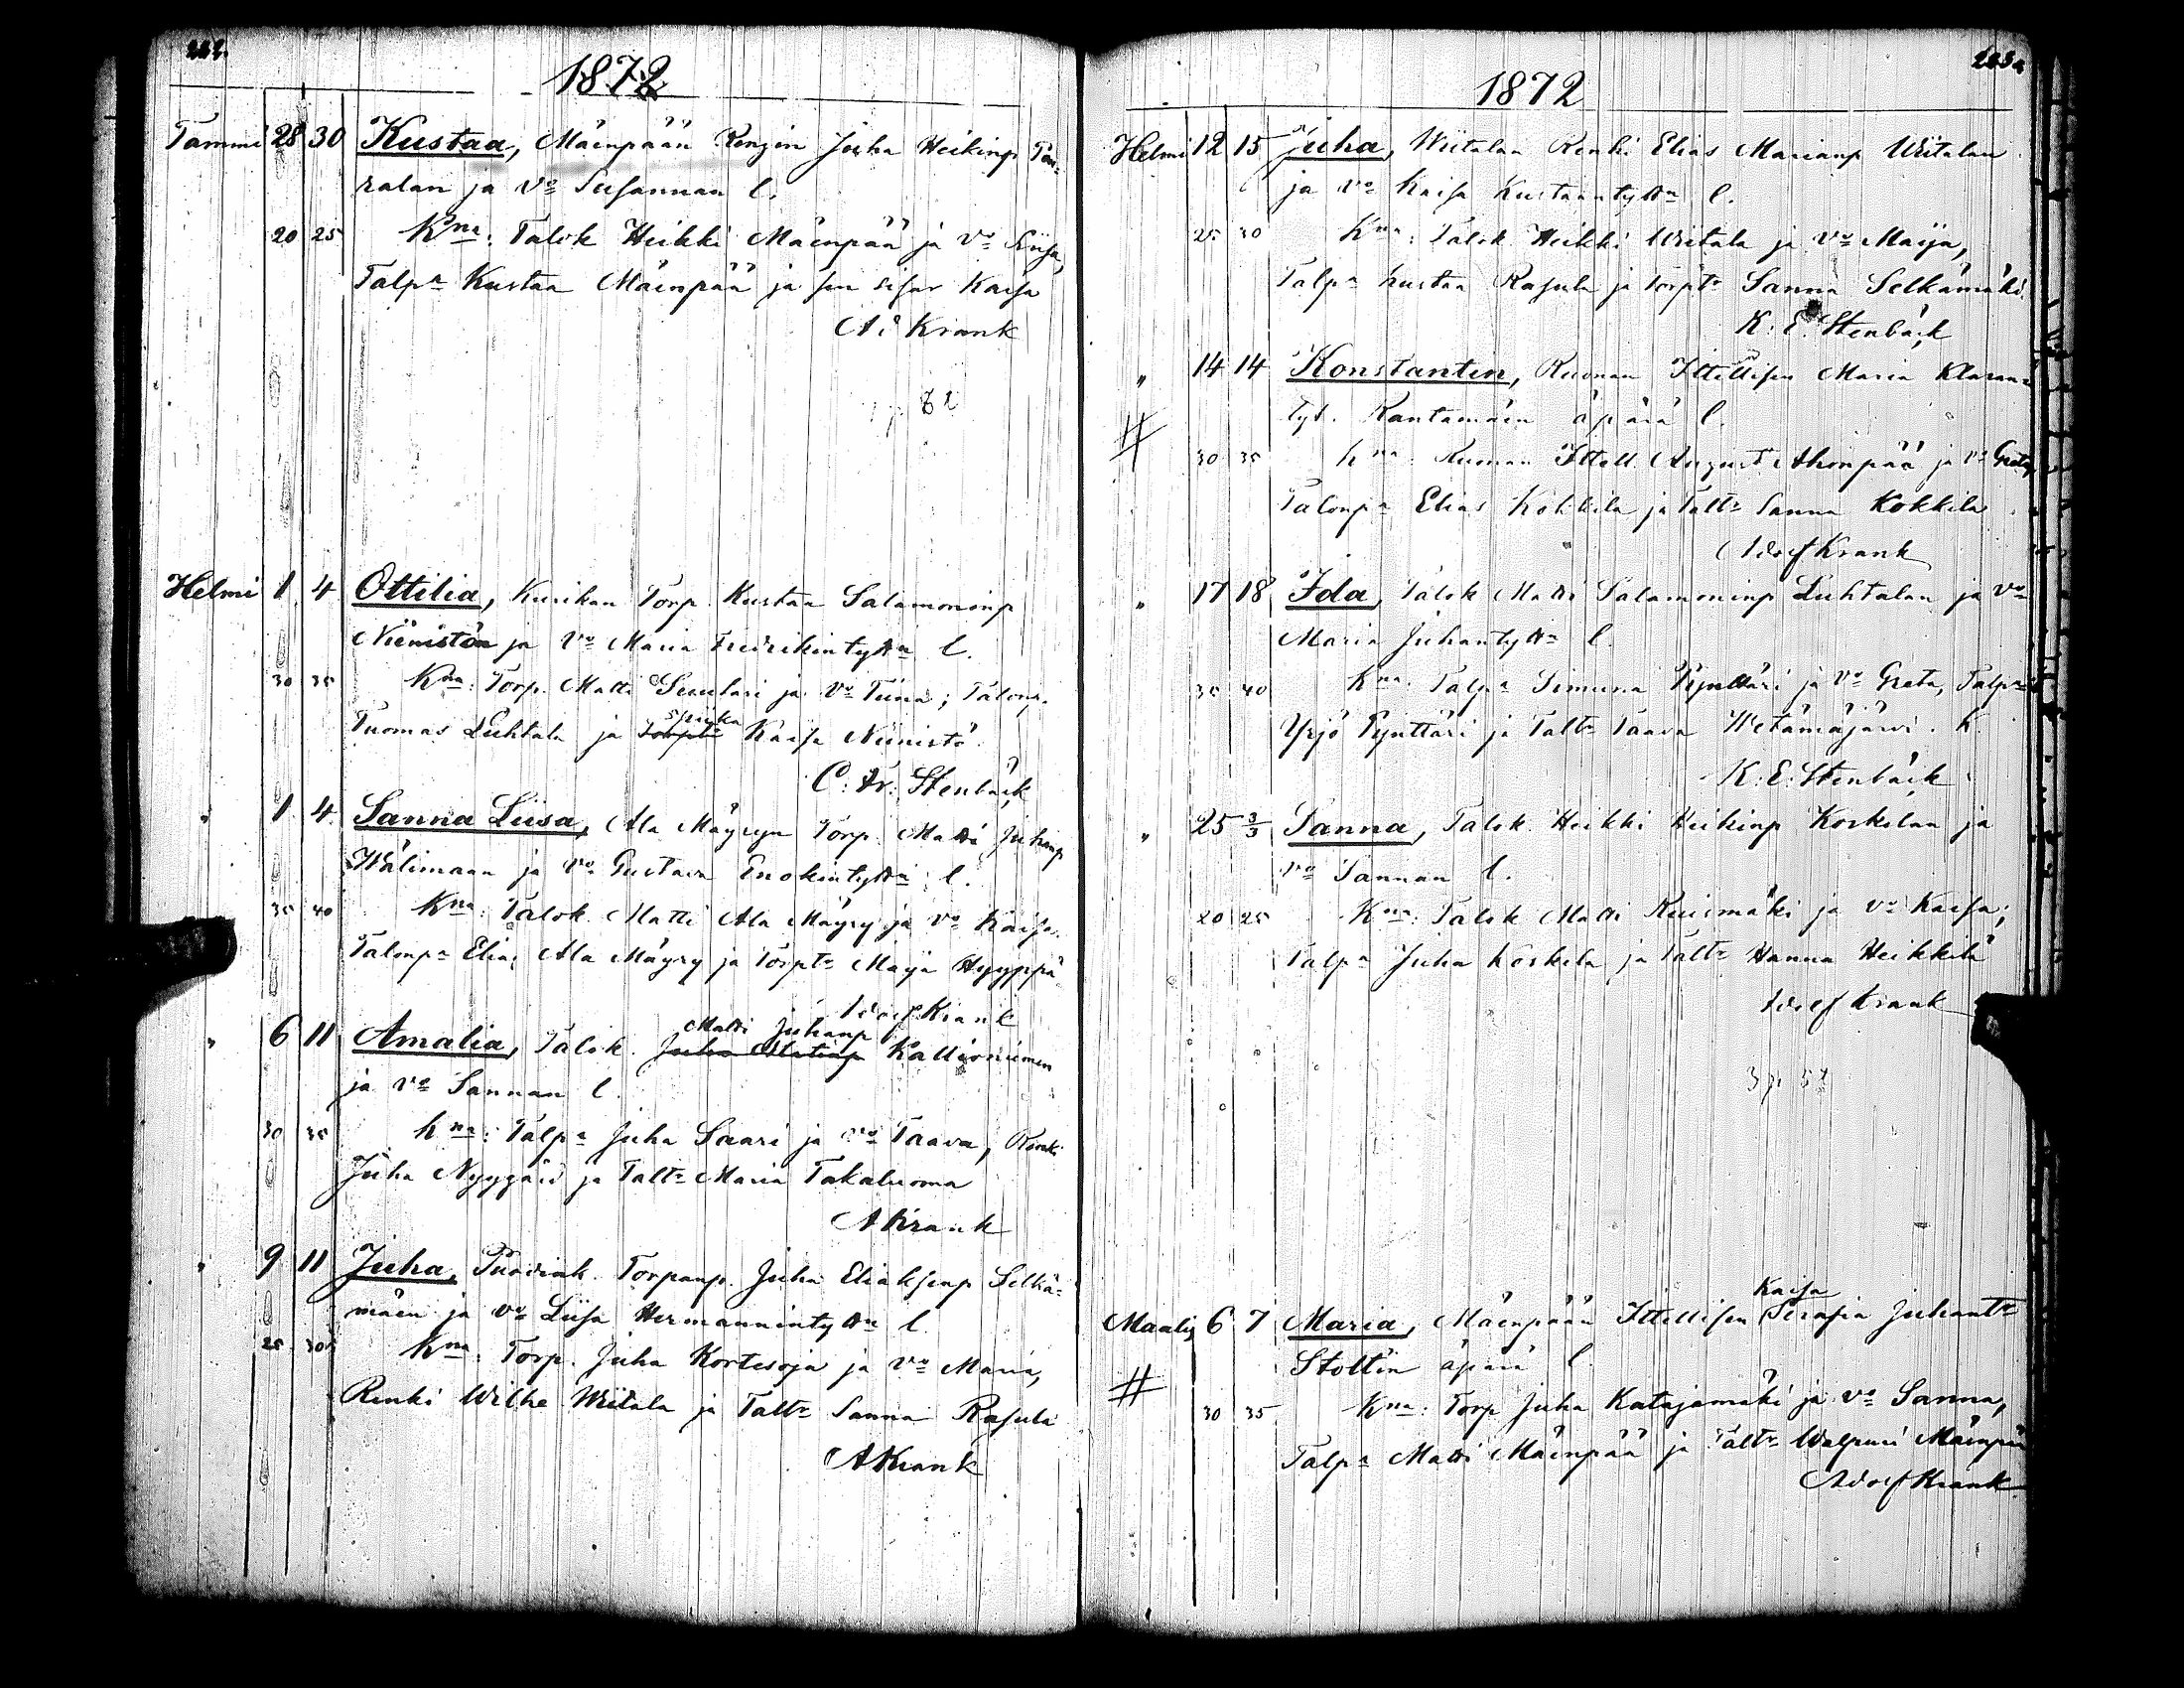 262.
1872
Tammi 28 30 Kustaa, Mäenpään Rengin Juha Heikinp
ralan ja vo Susannan l.
20 25 Kna: Talok Heikki Mäenpää ja vo Liisa,
Talpa Kustaa Mäenpää ja sen sisar Kaisa
Ad Krank
Helmi 1 4 Ottilia, Kurikan Torp. Kustaa Salamoninp
Niinistön ja Vo Maria Fredrikintyttn l.
30 35 Kna: Torp. Matti Suutari ja Vo Tiina; Talonp.
spiika
Tuomas Luhtala ja Torptr Kaisa Niinistö
C: Fr: Stenbäck
" 1 4 Sanna Liisa, Ala Mäyryn Torp. Matti Juhanp
Wälimaan ja Vo Gustava Enokintyttn l.
35 40 Kna: Talok Matti Ala Mäyry ja Vo Kaisa.
Talonpa Elias Ala Mäyry ja Torptr Maija Hyyppä
Adolf Krank
Matti Juhanp
" 6 11 Amalia, Talok. Juha Matinp Kallioniemen
ja vo Sannan l.
30 35 Kna: Talpa Juha Saari ja vo Taava, Renki
Juha Nyygård ja Taltr Maria Takaluoma
A Krank
" 9 11 Juha, Torpanp. Juha Eliaksenp Selkä-
mäen ja vo Liisa Hermannintyttn l.
25 30 Kna: Torp. Juha Kortesoja ja vo Maria,
Renki Wilhe Wiitala ja Taltr Sanna Rasula
A Krank
263.
1872
Helmi 12 15 Juha, Wiitalan Renki Elias Marianp Wiitalan
ja vo Kaisa Kustaantyttn l.
25 30 Kna: Talok Heikki Wiitala ja vo Maija,
Talpa Kustaa Rasula ja Torptr Sanna Selkämäki.
K: E: Stenbäck
" 14 14 Konstantin, Ruonan Itsellisen Maria Klaran-
# tyt. Rantamäen äpärä l.
30 35 Kna: Ruonan Itsell. August Ahonpää ja vo Greta,
Talonpa Elias Kokkila ja Taltr Sanna Kokkila
Adolf Krank
" 17 18 Ida, Talok Matti Salamoninp Luhtalan ja vo
Maria Juhantyttn l.
35 40 Kna: Talpa Simuna Pynttäri ja vo Greta, Talpa
Yrjö Pynttäri ja Taltr Taava Wetämäjärvi. K.
K: E: Stenbäck
" 25 3/3 Sanna, Talok Heikki Heikinp Koskelan ja
vo Sannan l.
20 25 Kna: Talok Matti Ruismäki ja vo Kaisa;
Talpa Juha Koskela ja Taltr Hanna Heikkilä
Adolf Krank
Kaisa
Maalis 6 7 Maria, Mäenpään Itsellisen Serafia Juhantr
# Stoltin äpärä l.
30 35 Kna: Torp Juha Katajamäki ja vo Sanna,
Talpa Matti Mäenpää ja Taltr Walpuri Mäenpää
Adolf Krank